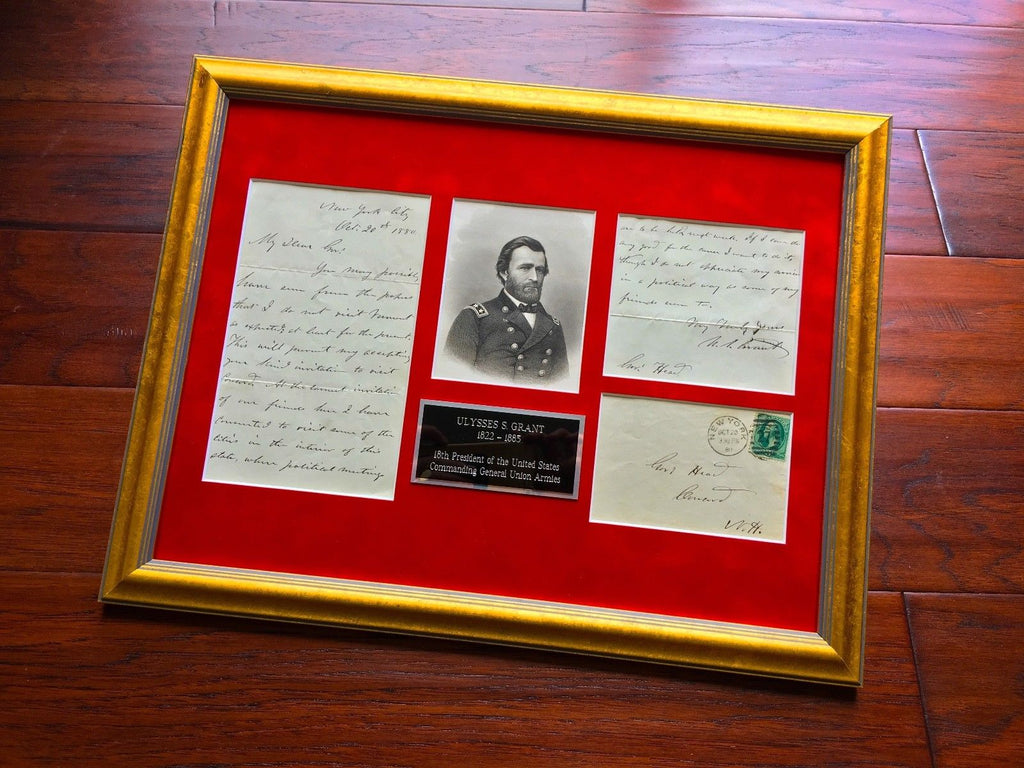 New York City
Oct. 20th 1880
My Dear Gov.
You may possibly
have seen from the papers
that I do not visit Vermont
as expected, at least for the present.
This will prevent my accepting
your kind invitation to visit
Concord. At the earnest invitation
of our friends here I have
consented to visit some of the
cities in the interior of this
state, where political meetings
are to be held next week. If I can do
any good for the cause I want to do it
though I do not appreciate my services
in a political way as some of my
friends seem to.
Very Truly yours
U. S. Grant
Gov. Head
ULYSSES S. GRANT
1822 – 1885
18th President of the United States
Commanding General Union Armies
NEW YORK
OCT 20
Gov. Head
Concord
N.H.